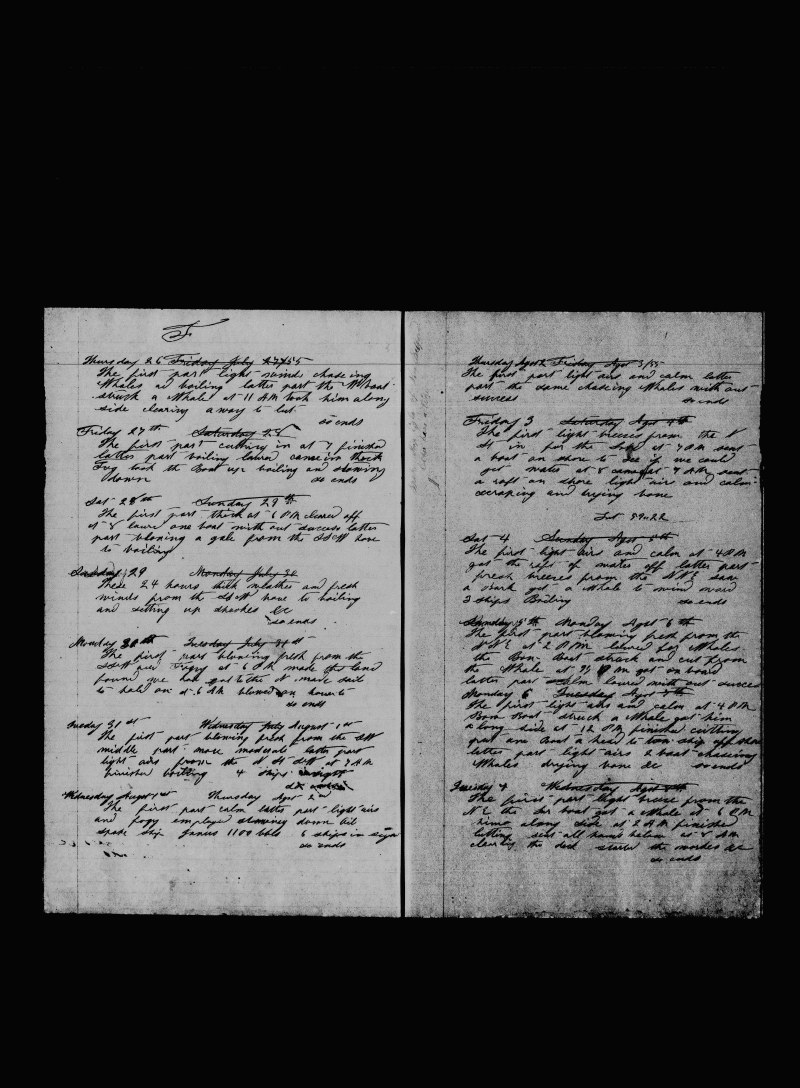 F
Thursday 26 Friday July 27/55
The first part light winds chaseing
Whales and boiling latter part the W boat
struck a Whale at 11 AM took him along
side clearing away to cut
so ends
Friday 27th Saturday 28
The first part cutting in at 7 finished
latter part boiling came in thick
Fog took the Boat up boiling and stowing
down so ends
Sat 28th Sunday 29th
The first part thick at 6 PM cleared off
at 8 one boat with out success latter
part blowing a gale from the SSW
to boiling
Sunday 29 Monday July 30
These 24 hours thick weather and fresh
winds from the SSW hove to boiling
and setting up shooks &c
so ends
Monday 30th Tuesday July 31st
The first part blowing fresh from the
SSW and Foggy at 6 PM made the land
found we had got to the N made sail
to hold on at 6 AM hove to
so ends
Tuesday 31st Wednesday July August 1st
The first part blowing fresh from the SW
middle part more moderate latter part
light airs from the N at 7 AM
finished boiling 4 ships in sight
so ends
Wednesday August 1st Thursday Agst 2nd
The first part calm latter part light airs
and fogy employed stowing down oil
spoke ship Janus 1100 bbls 6 ships in sight
so ends
Thursday Agst 2 Friday Agst 3/55
The first part light airs and calm latter
part the same chaseing Whales with out
success so ends
Friday 3 Saturday Agst 4th
The first light breeses from the N
St in for the land at 7 PM sent
a boat on shore to see if we could
get water at 8 came at 7 AM sent
a raft on shore light airs and calm
scraping and drying bone
Lat 59=22
Sat 4 Sunday Agst 5th
The first light airs and calm at 4 PM
got the raft of water off latter part
fresh breeses from the NNE saw
a bark get a Whale to wind ward
3 ships Boiling so ends
Sunday 5th Monday Agst 6th
The first part blowing fresh from the
NNE at 2 PM lowered for Whales
the Bow Boat struck and cut from
the Whale at 9 PM got on board
latter part calm lowered with out success
Monday 6 Tuesday Agst 7th
The first light airs and calm at 4 PM
Bow Boat struck a Whale got him
a long side at 12 PM finished cutting
put one Boat a head to tow ship off shore
latter part light airs 2 boats chaseing
Whales drying bone &c so ends
Tuesday 7 Wednesday Agst 8th
The first part light breese from the
NE the boat got a Whale at 6 PM
him along side at 2 AM finished
cutting sent all hands below at 8 AM
clearing the deck started the workes &c
so ends